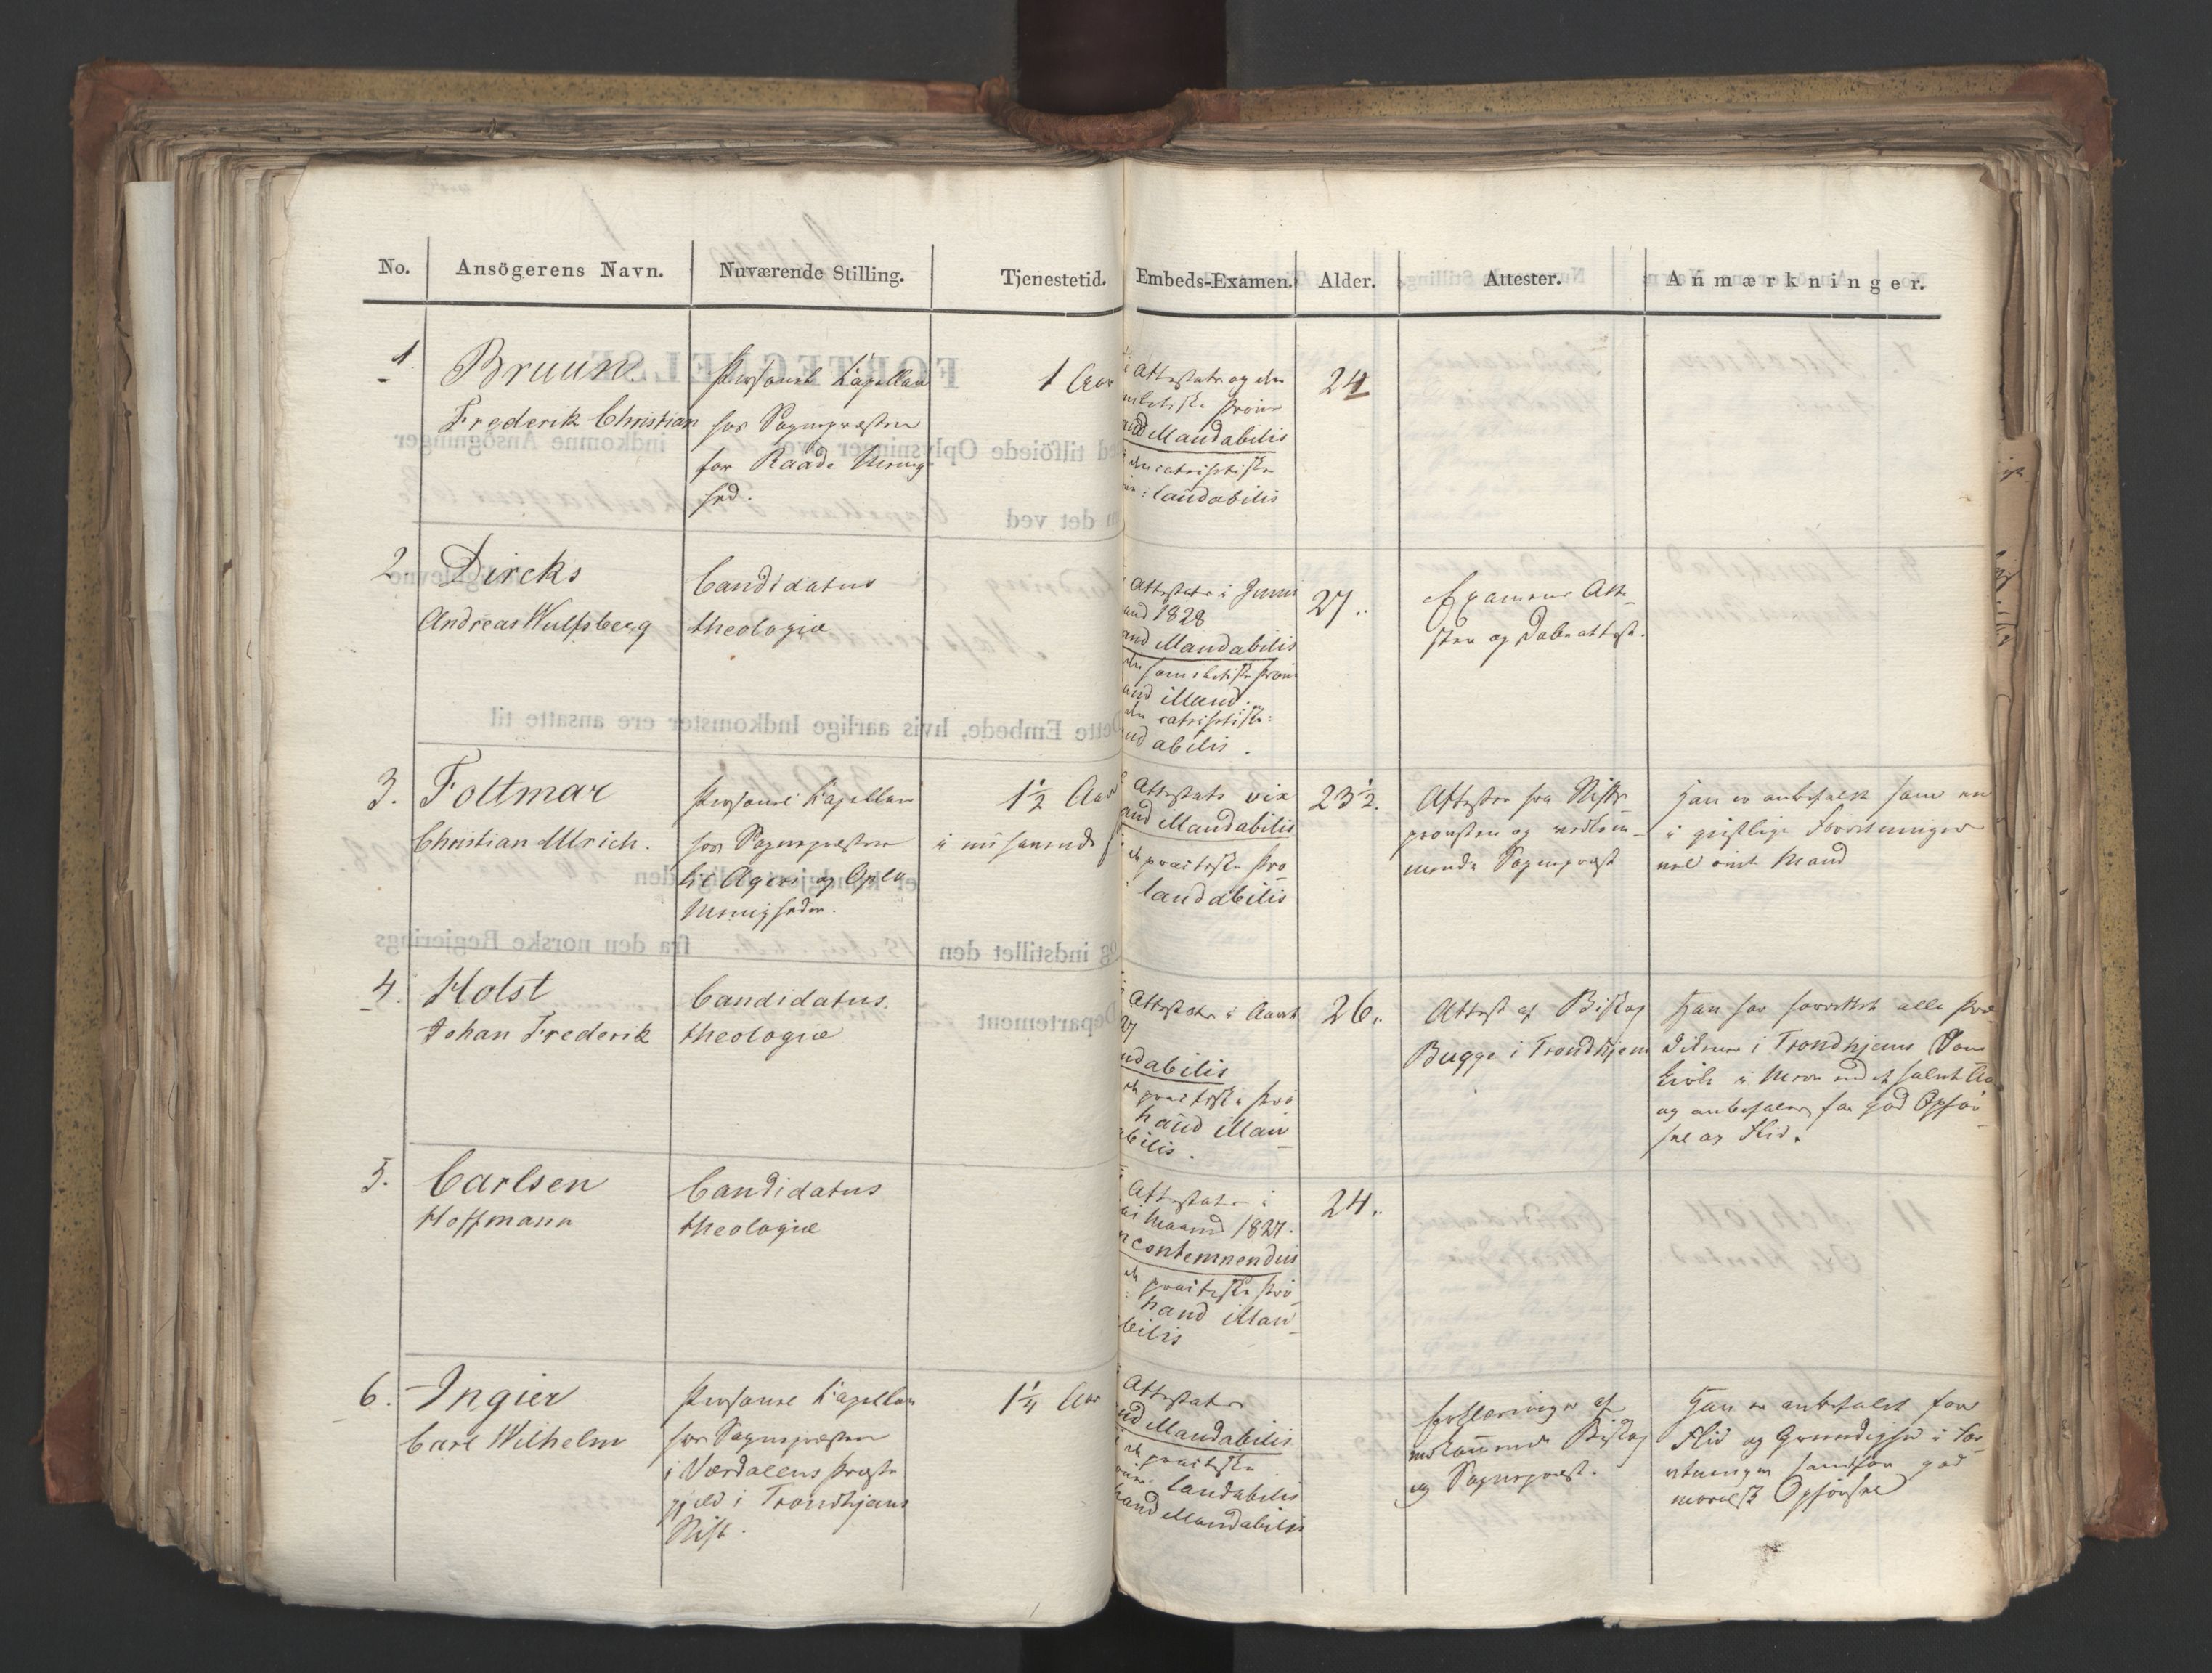 No. Ansögerens Navn. Nuværende Stilling. Tjenestetid. Embeds-Examen. Alder. Attester. Anmærkninger.
1
Bruun
Frederik Christian
Personel Kapellan
hos Sognepræsten
for Raade Menig-
hed.
1 Aar
Attestats og den
Prøve
Haud illaudabilis
den catechetiske
laudabilis
24
2.
Dircks
Andreas Wulfsberg
Candidatus
theologiæ
Attestats i Junii
1828
haud illaudabilis
den homiletiske Prøve
haud illaud.
den catechetiske:
laudabilis.
27.
Examens Atte-
ster og Dabsattest.
3.
Foltmar
Christian Ulrich.
Personel Kapellan
hos Sognepræsten
til Agers og Oplu
Menigheder.
1½ Aar
Attestats vix
haud illaudabilis
den practiske Prø-
laudabilis
23½.
Attester fra Stifts-
provsten og vedkom-
mende Sognepræst
Han er anbefalet som en
i geistlige Forretninger
vel øvet Mand
4.
Holst
Johan Frederik
Candidatus
theologiæ
Attestats i Aaret
27
laudabilis
den practiske Prø-
haud illau-
dabilis.
26.
Attest af Biskop
Bugge i Trondhjem
Han har forrettet alle Præ-
dikener i Trondhjems Dom-
kirke i Meer end et halvt Aar
og anbefales for god Opfør-
sel og Flid.
5.
Carlsen
Hoffmann
Candidatus
theologiæ
Attestats i
Maaned 1827.
non contemnendus
den practiske Prø-
haud illau-
dabilis
24.
6.
Ingier
Carl Wilhelm
Personel Kapellan
hos Sognepræsten
i Værdalens Præste
gjeld i Trondhjems
Stift.
1¼ Aar
Attestats
haud illaudabilis
den practiske
laudabilis
haud illaudabilis
Erklæringer af
vedkommende Biskop
og Sognepræst.
Han er anbefalet for
Flid og Grundighed i For-
retninger samt for god
moralsk Opførsel